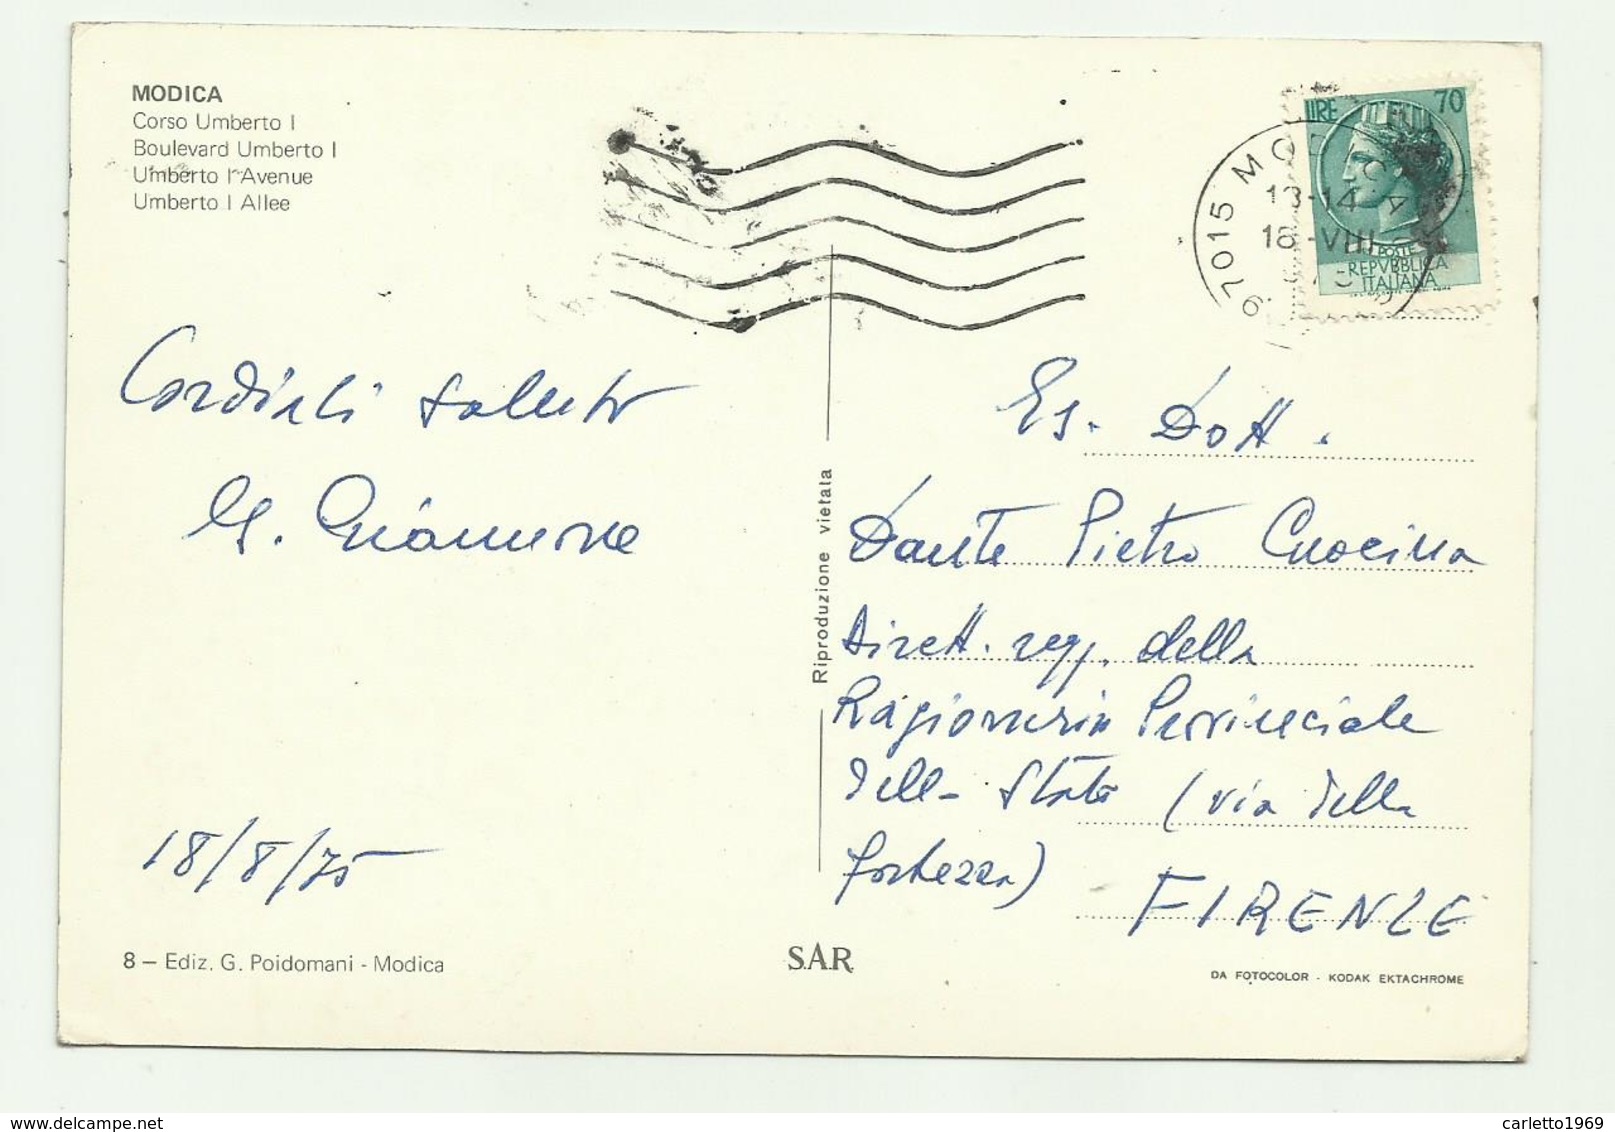 MODICA
Corso Umberto I
Boulevard Umberto I
Umberto I Avenue
Umberto I Allee
LIRE 70
POSTE
REPVBBLICA
ITALIANA
97015 MODICA
13-14
18-VIII
Cordiali saluti
G. Giannone
18/8/75
Eg. Dott.
Dante Pietro Cuocina
Dirett. reg. della
Ragioneria Provinciale
dello Stato (via della
fortezza)
FIRENZE
Riproduzione vietata
8 — Ediz. G. Poidomani - Modica
S.A.R.
DA FOTOCOLOR - KODAK EKTACHROME
carletto1969